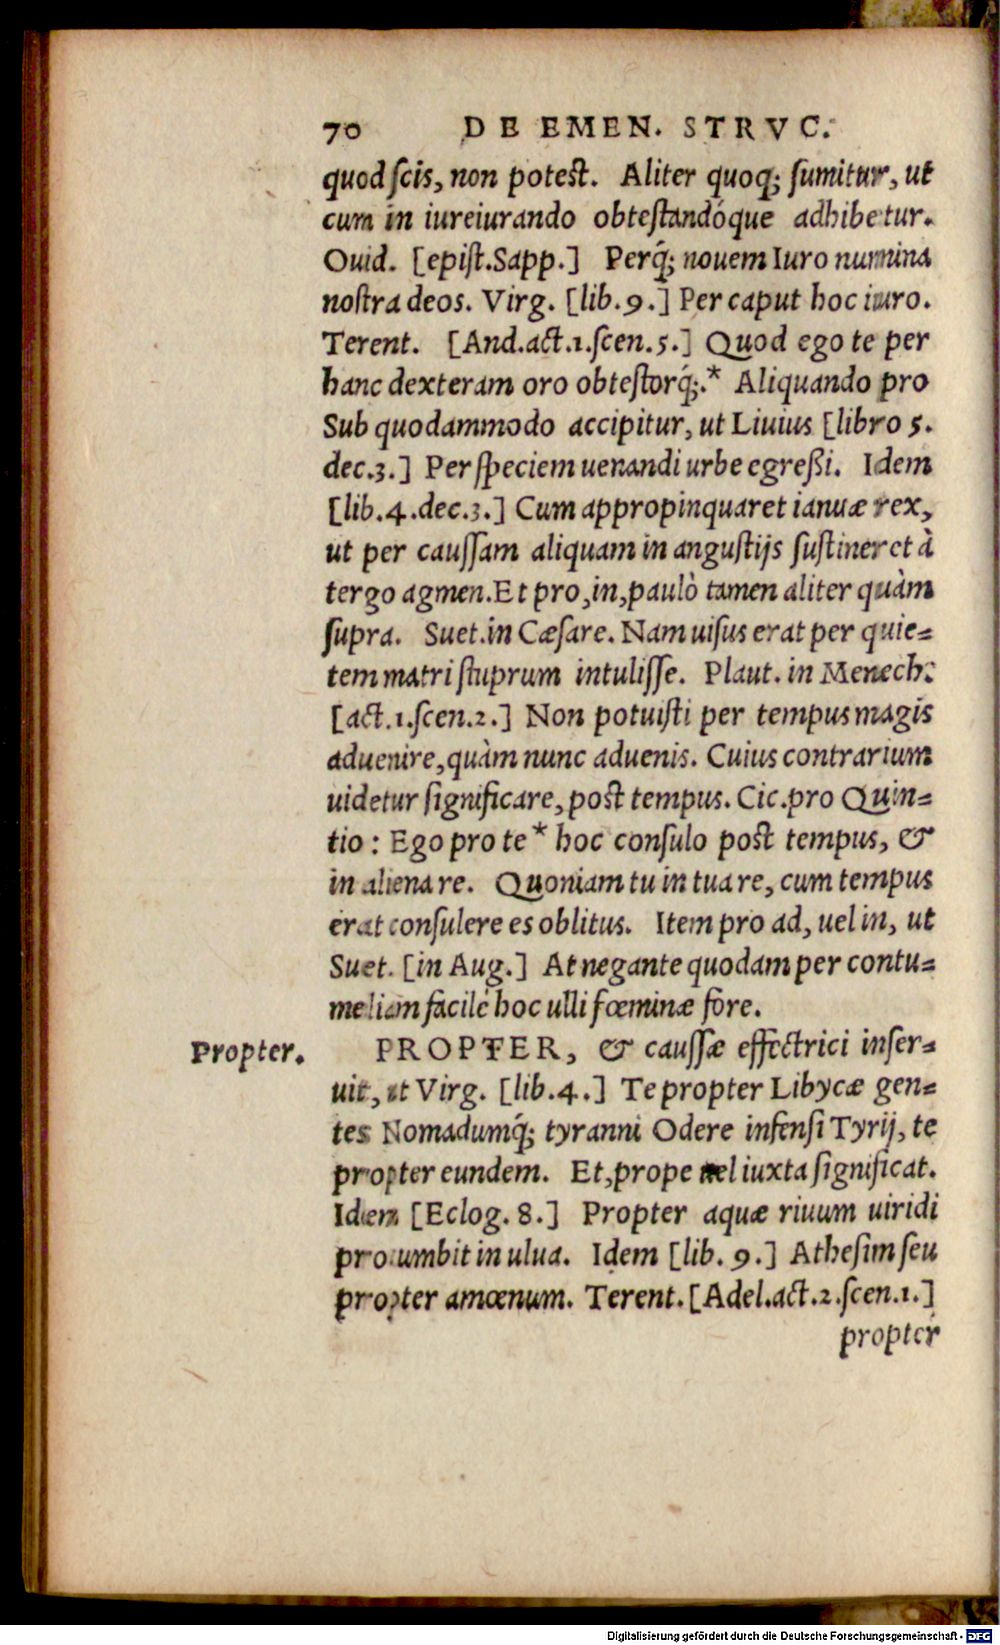 70 DE EMEN. STRVC.
quod ſcis, non poteſt. Aliter quoq; ſumitur, ut
cum in iureiurando obteſtandóque adhibetur.
Ouid. [epiſt.Sapp.] Perq́; nouem Iuro numina
noſtra deos. Virg. [lib.9.] Per caput hoc iuro.
Terent. [And.act.1.ſcen.5.] Quod ego te per
hanc dexteram oro obteſtorq́;.* Aliquando pro
Sub quodammodo accipitur, ut Liuius [libro 5.
dec.3.] Per ſpeciem uenandi urbe egreßi. Idem
[lib.4.dec.3.] Cum appropinquaret ianuæ rex,
ut per cauſſam aliquam in anguſtijs ſuſtineret à
tergo agmen. Et pro, in, paulò tamen aliter quàm
ſupra. Suet. in Cæſare. Nam uiſus erat per quie=
tem matri ſtuprum intuliſſe. Plaut. in Menech.
[act.1.ſcen.2.] Non potuiſti per tempus magis
aduenire, quàm nunc aduenis. Cuius contrarium
uidetur ſignificare, poſt tempus. Cic. pro Quin=
tio : Ego pro te * hoc conſulo poſt tempus, &
in aliena re. Quoniam tu in tua re, cum tempus
erat conſulere es oblitus. Item pro ad, uel in, ut
Suet. [in Aug.] At negante quodam per contu=
meliam facilè hoc ulli fœminæ fore.
Propter. PROPTER, & cauſſæ effectrici inſer=
uit, ut Virg. [lib.4.] Te propter Libycæ gen=
tes Nomadumq́; tyranni Odere infenſi Tyrij, te
propter eundem. Et, prope uel iuxta ſignificat.
Idem [Eclog. 8.] Propter aquæ riuum uiridi
procumbit in ulua. Idem [lib. 9.] Atheſim ſeu
propter amœnum. Terent. [Adel.act.2.ſcen.1.]
propter
Digitalisierung gefördert durch die Deutsche Forschungsgemeinschaft - DFG